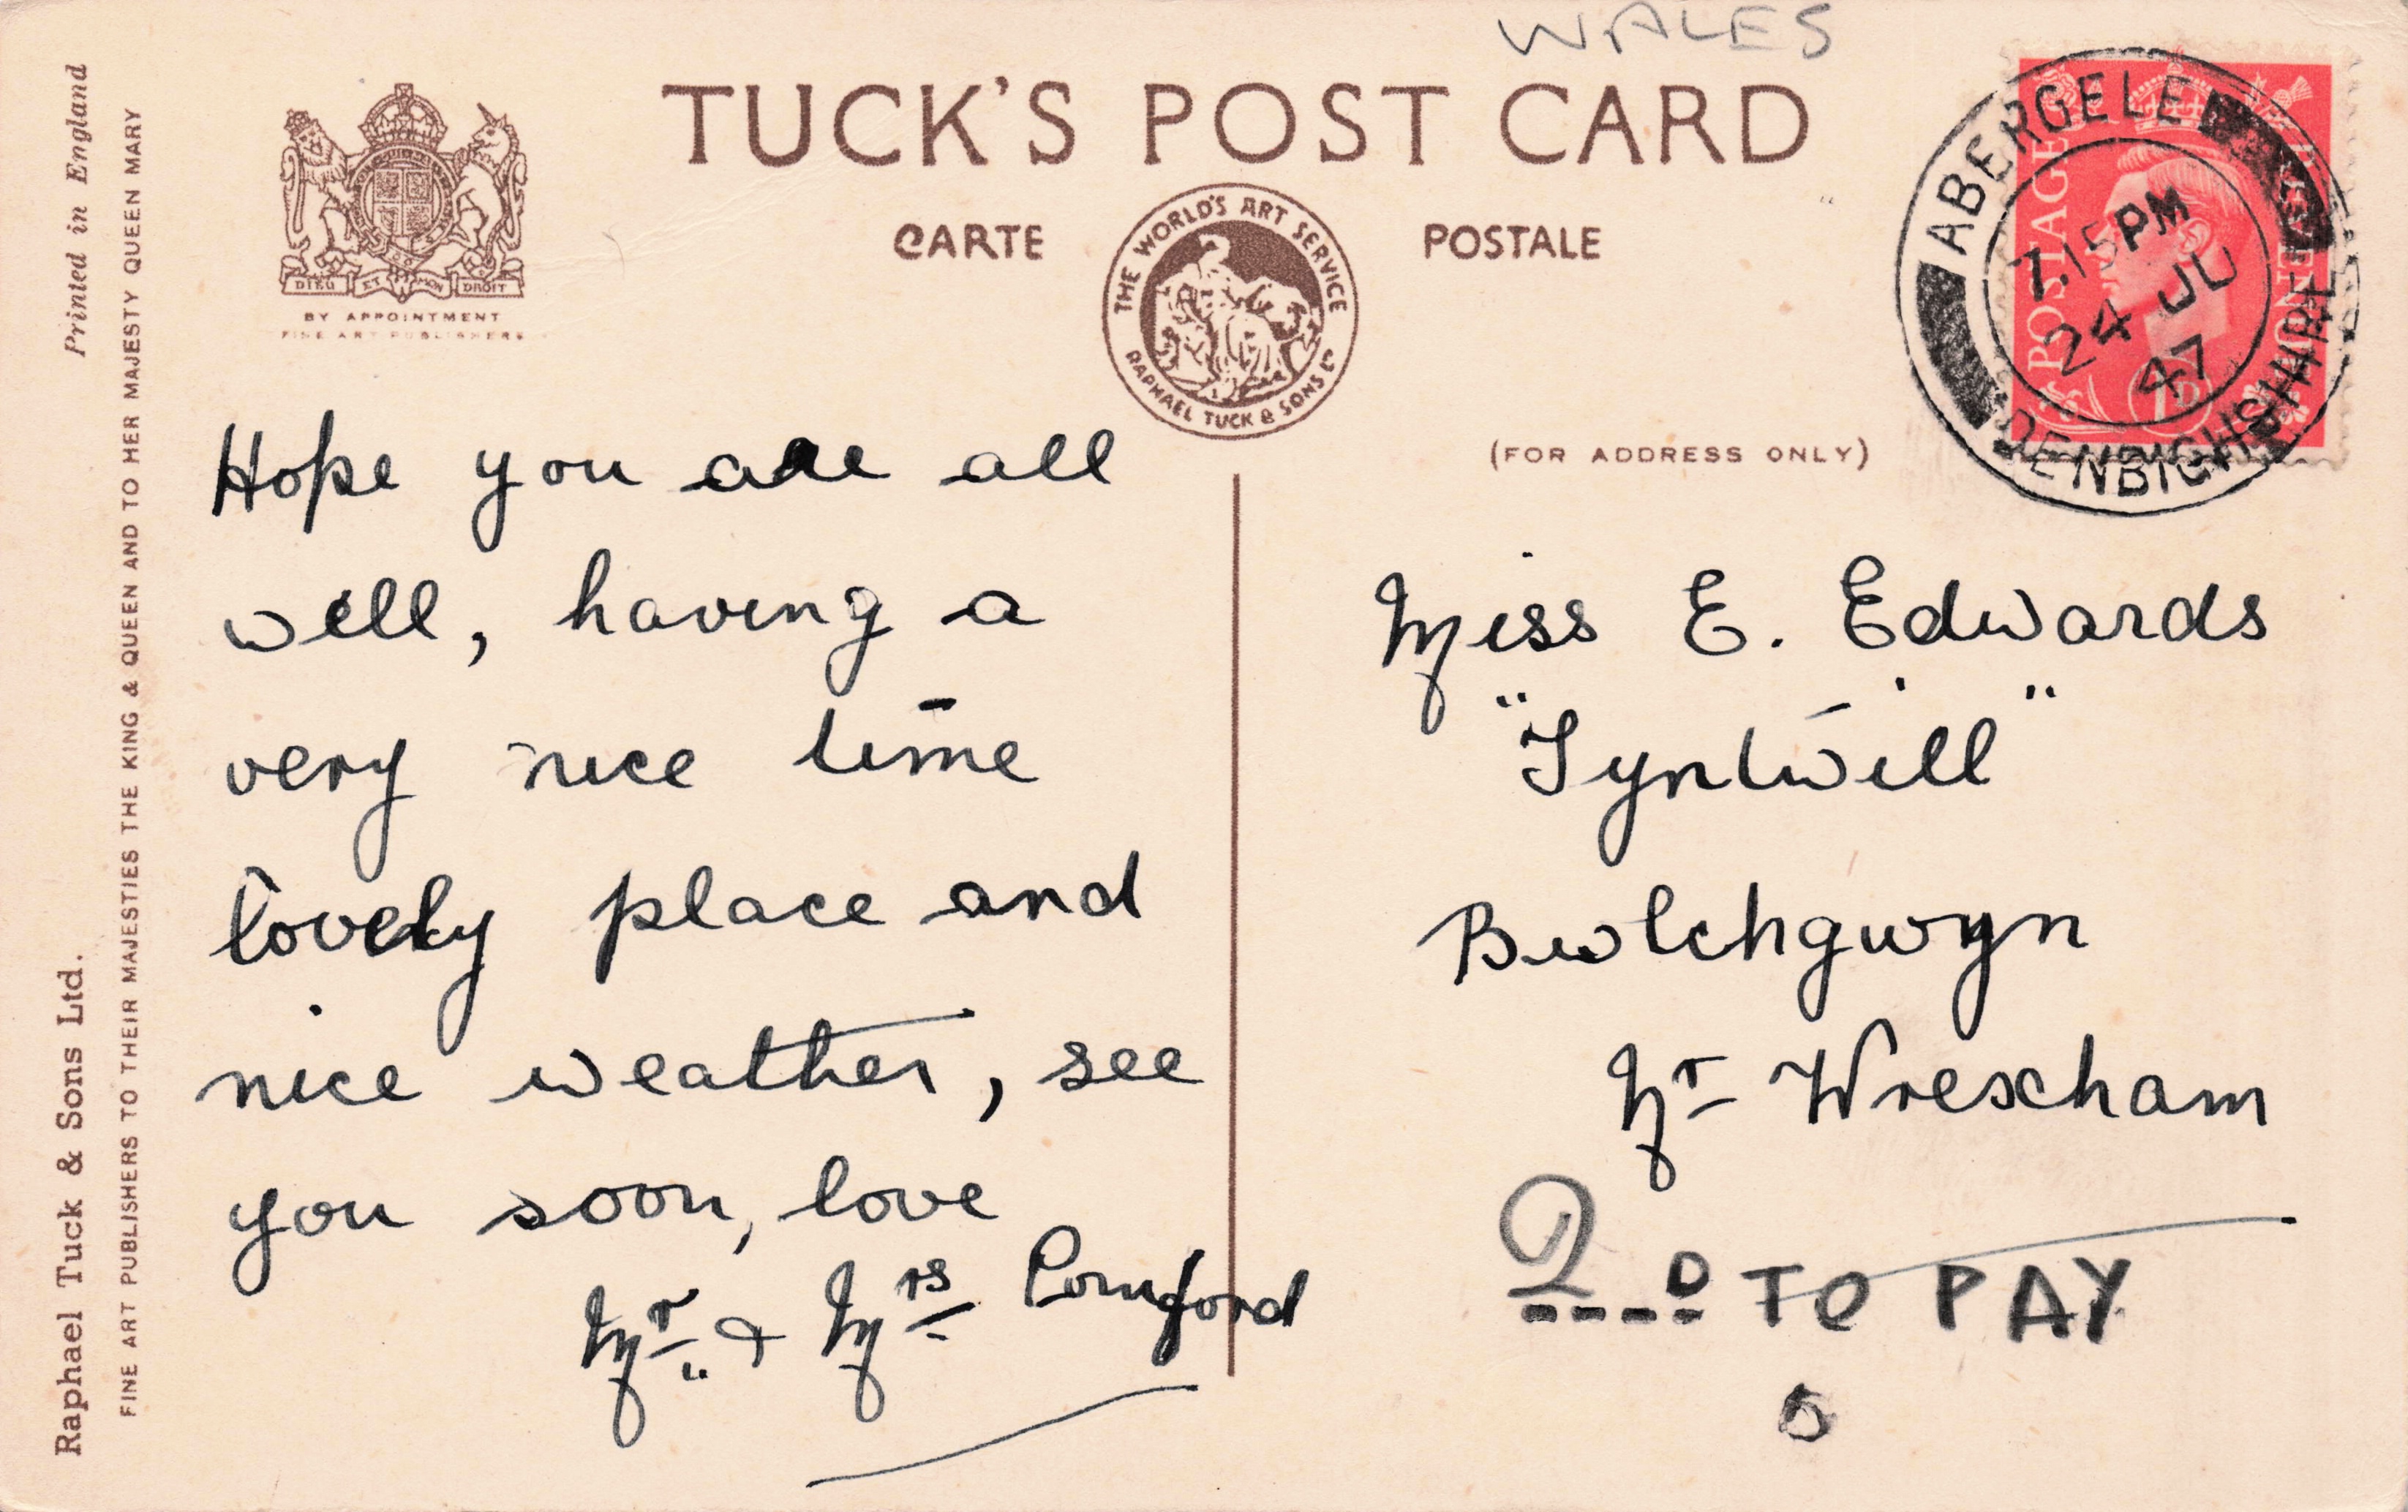 WALES
TUCK'S POST CARD
CARTE POSTALE
THE WORLD'S ART SERVICE
RAPHAEL TUCK & SONS LTD
DIEU ET MON DROIT
BY APPOINTMENT
FINE ART PUBLISHERS
Printed in England
Raphael Tuck & Sons Ltd.
FINE ART PUBLISHERS TO THEIR MAJESTIES THE KING & QUEEN AND TO HER MAJESTY QUEEN MARY
ABERGELE
7.15PM
24 JU
47
DENBIGHSHIRE
POSTAGE
1D
(FOR ADDRESS ONLY)
Hope you are all
well, having a
very nice time
lovely place and
nice weather, see
you soon, love
Mr. & Mrs
Miss E. Edwards
"Tyntwill"
Bwlchgwyn
Nr Wrexham
2D TO PAY